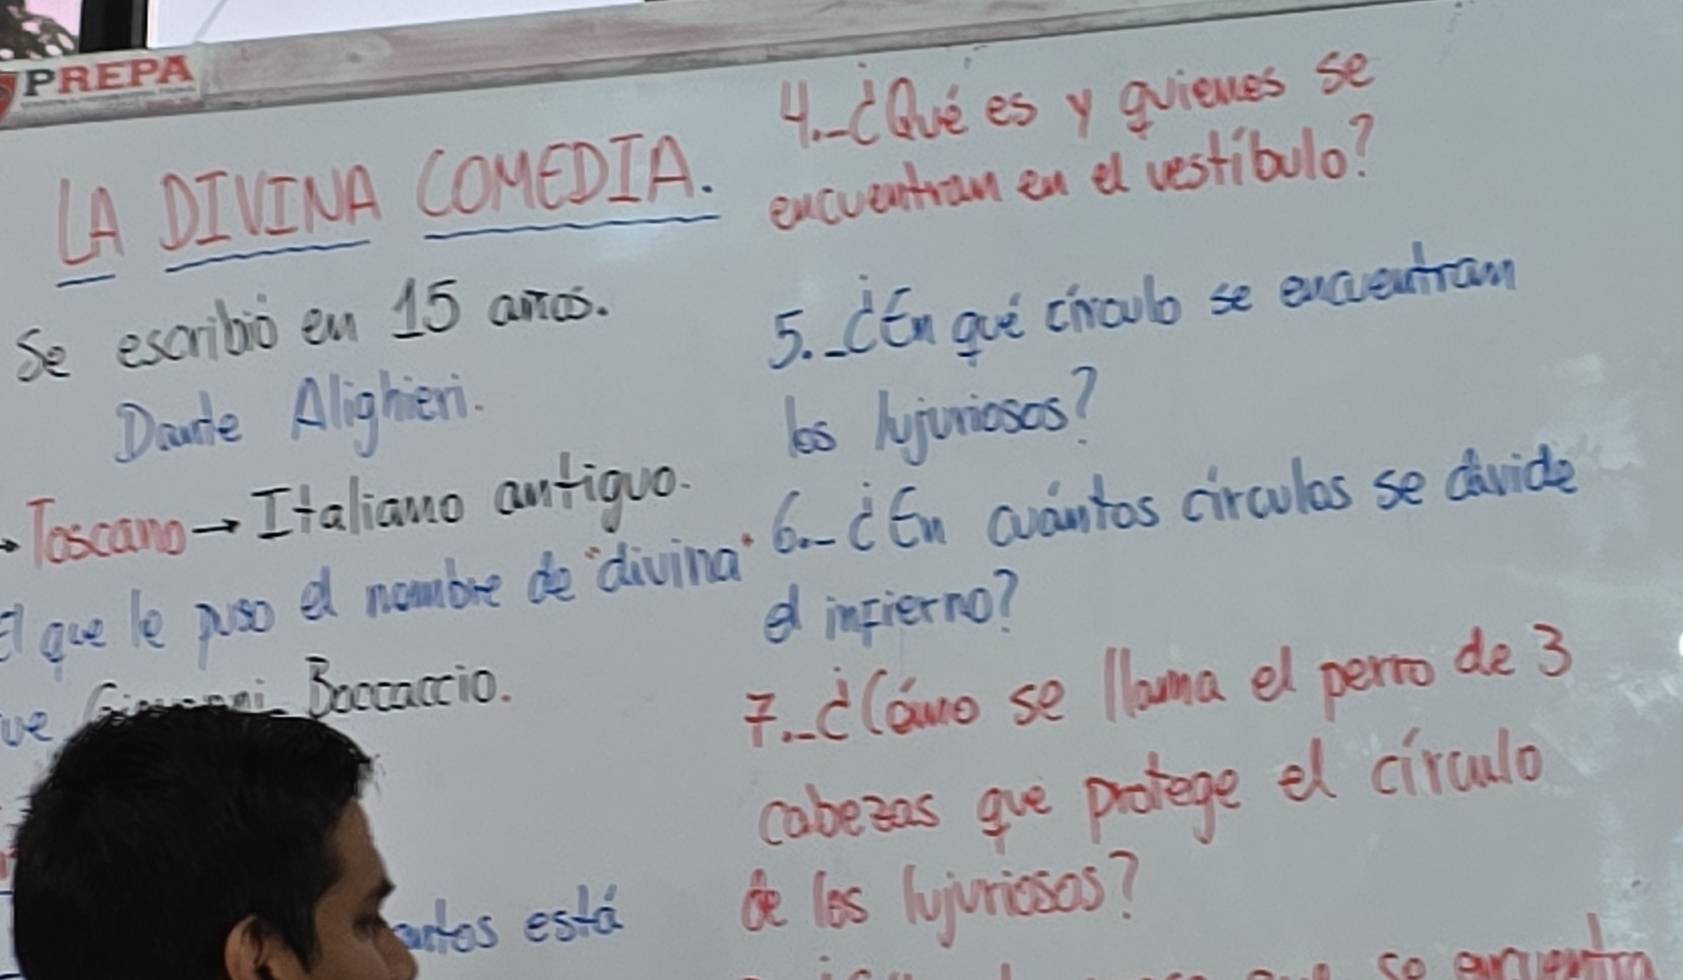 PREPA
LA DIVINA COMEDIA.
Se escribió en 15 años.
Dante Alighieri.
Toscano → Italiano antiguo.
El que le puso el nombre de "divina"
Boccaccio.
está
4.- ¿Qué es y quienes se
encuentran en el vestíbulo?
5.- ¿En qué círculo se encuentran
los lujuriosos?
6.- ¿En cuántos círculos se divide
el infierno?
7.- ¿Cómo se llama el perro de 3
cabezas que protege el círculo
de los lujuriosos?
se encuentra